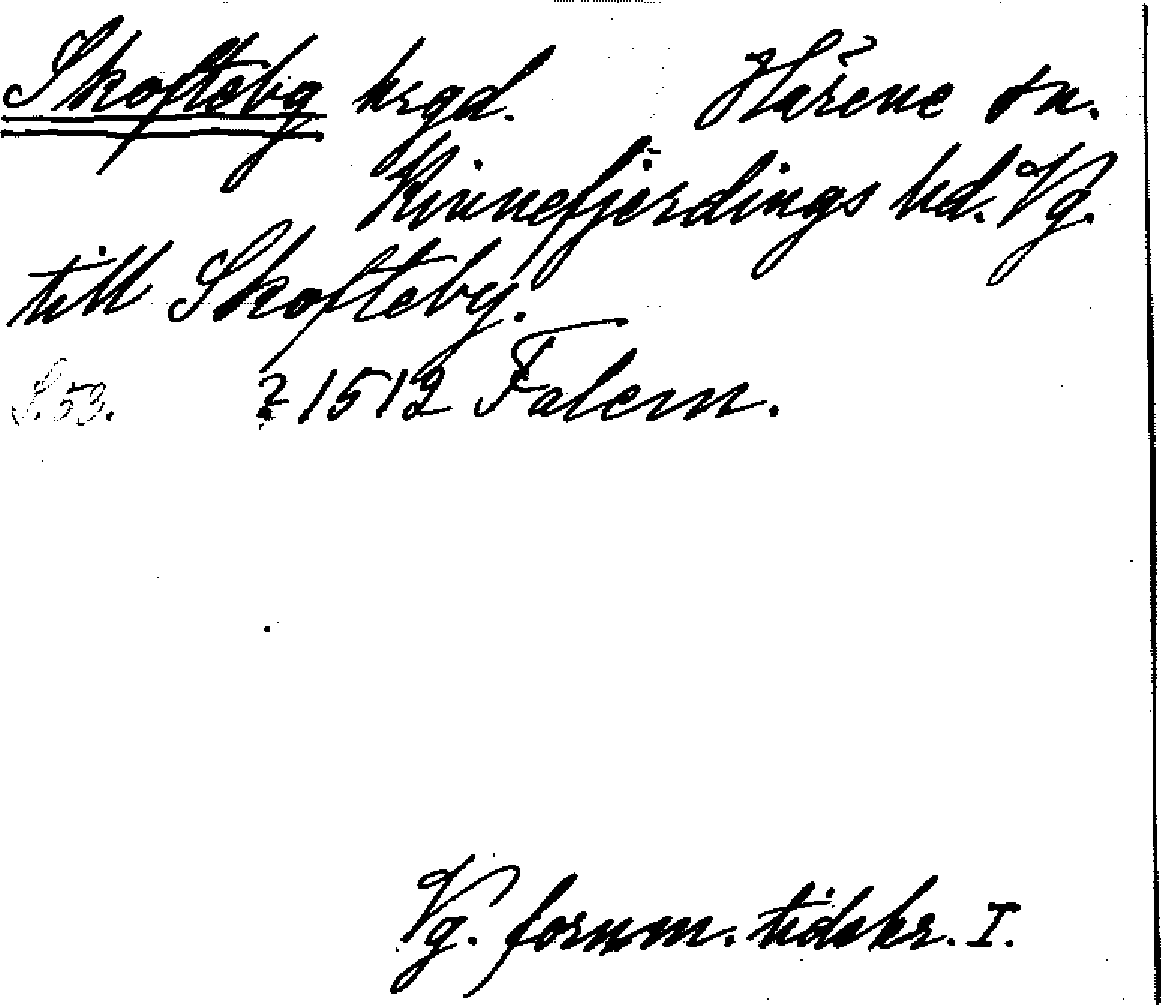 Skofteby hrgd. Härene sn.
Kinnefjerdings hd. Vg.
till Skofteby.
S. 53. ? 1512 Falem.
Vg. fornm. tidskr. I.